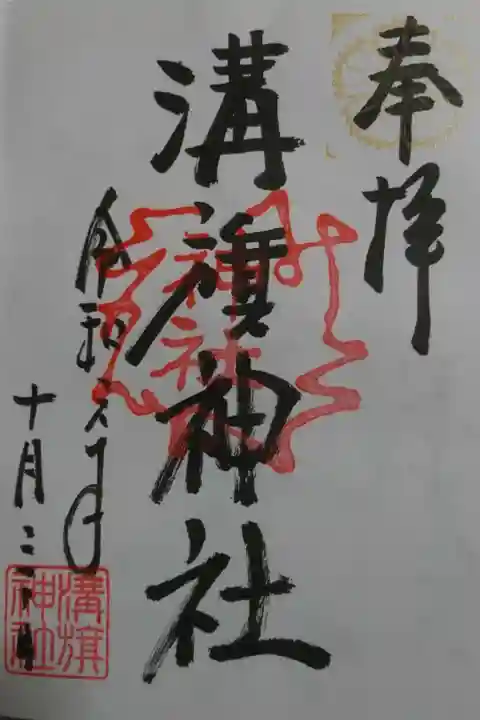 奉拝
溝旗神社
神社
令和六年
十月
溝旗
神社